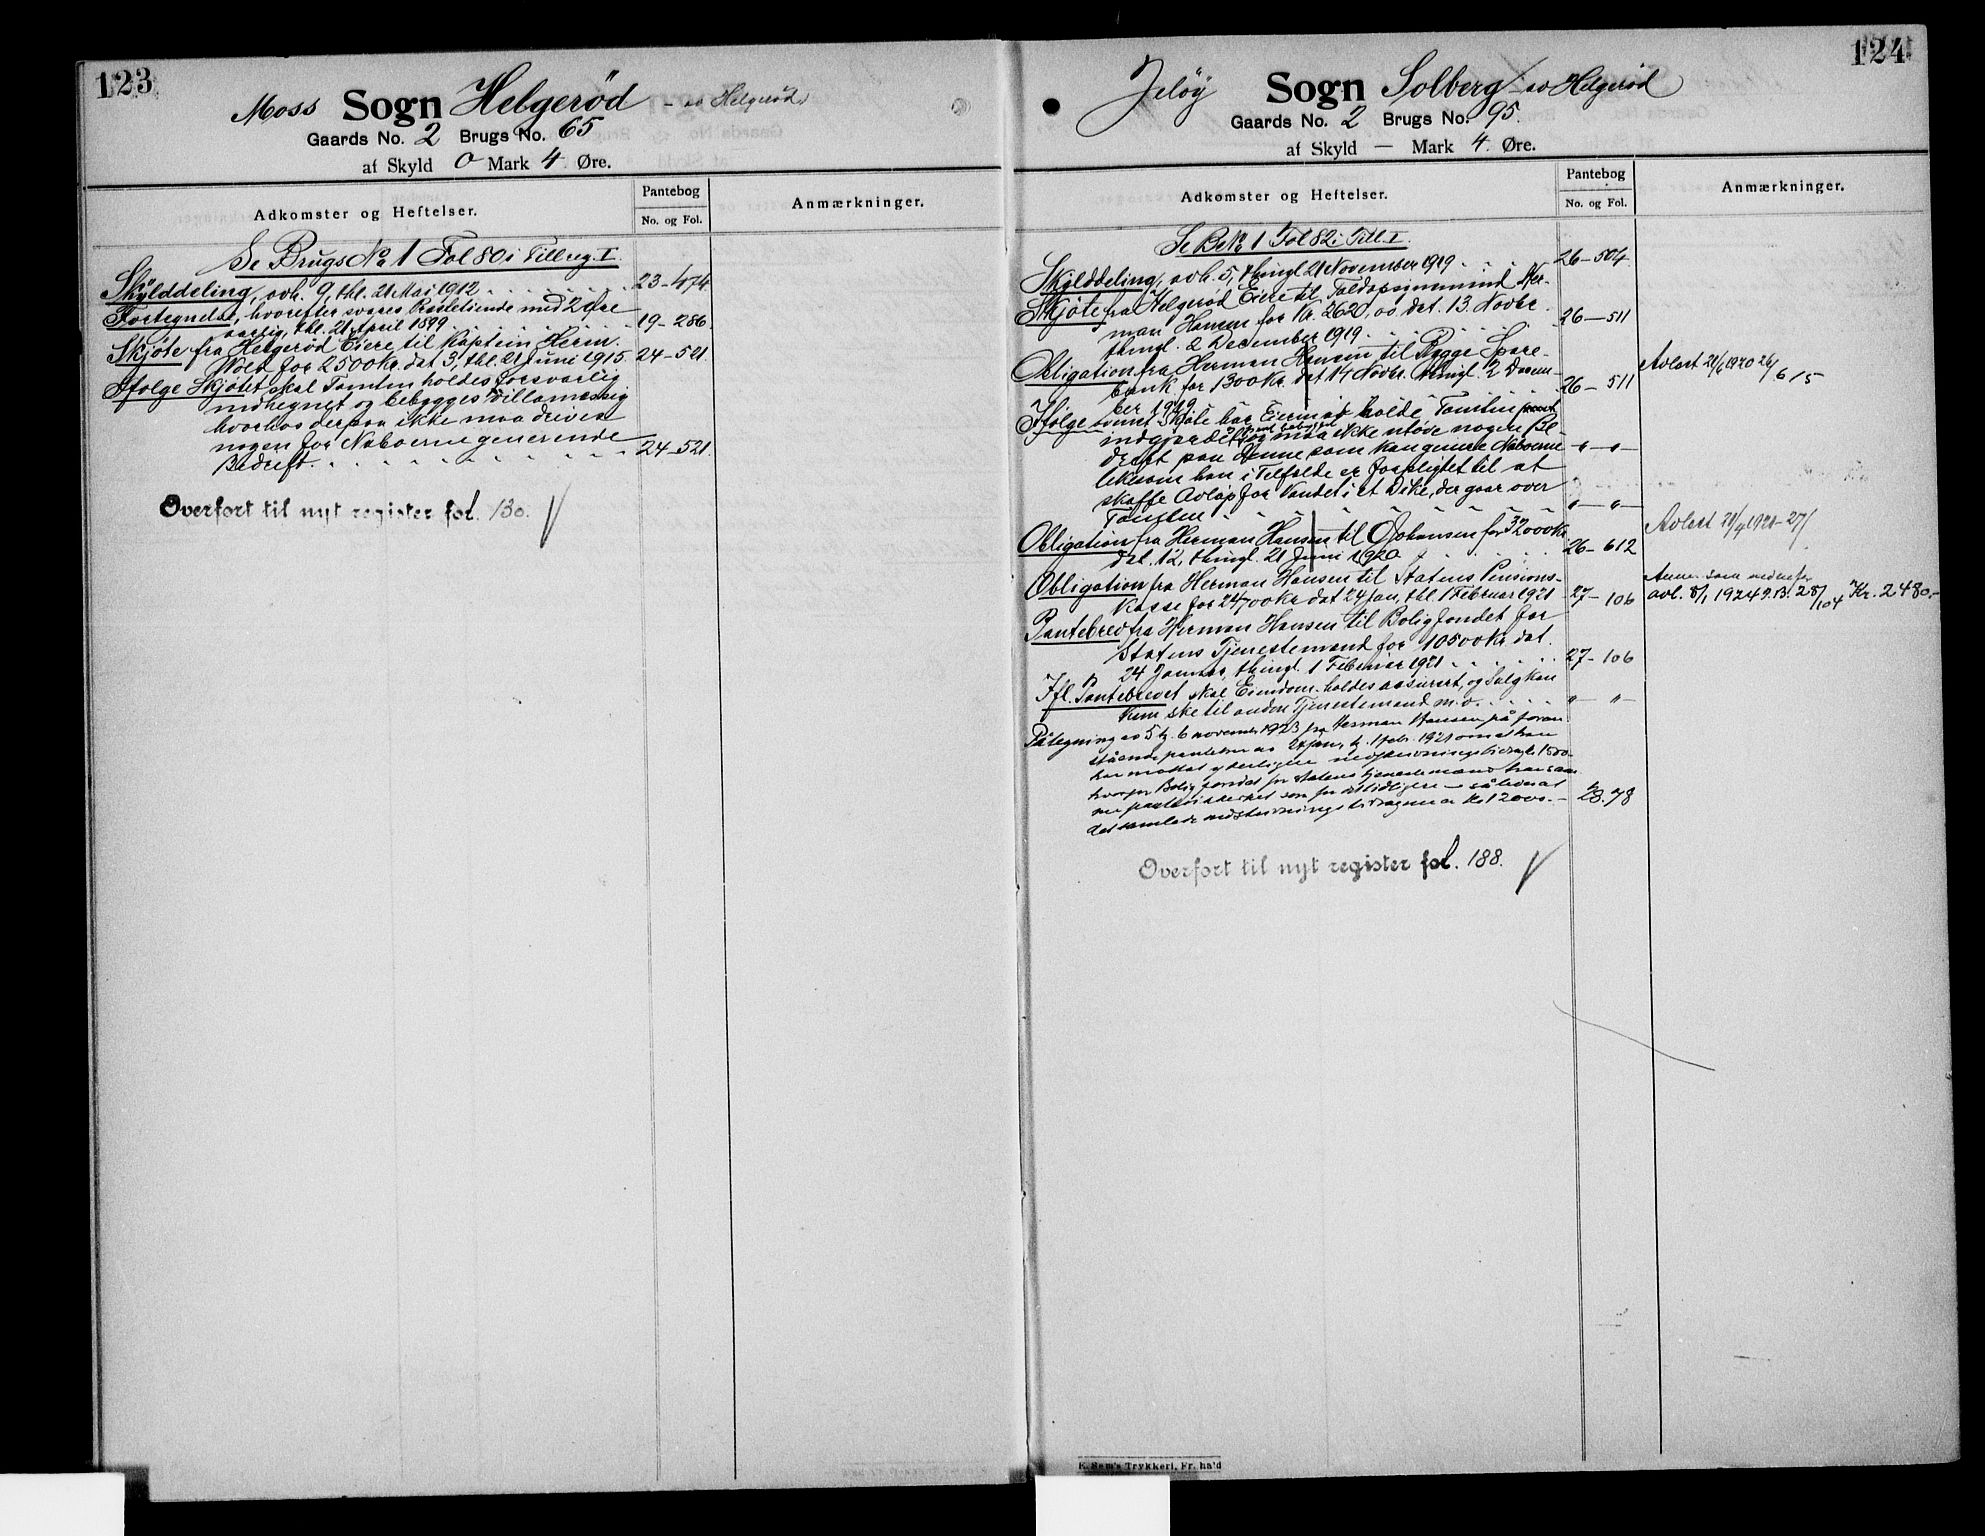 123
Moss Sogn Helgerød - av Helgerød
Gaards No. 2 Brugs No. 65
af Skyld 0 Mark 4 Øre.
Adkomster og Heftelser.
Pantebog
No. og Fol.
Anmærkninger.
Se Brugs No 1 Fol 80 i Tillæg. I.
Skylddeling, avh. 9, thl. 21 Mai 1912 23-474
Fortegnelse, hvorefter svares Præstetiende med 2 Øre
aarlig, thl. 21 April 1899 19-286
Skjøte fra Helgerød Eiere til Kaptein Herm.
Wold for 2500 Kr. dat 3, thl. 21 Juni 1915. 24-521
Ifølge Skjøtet skal Tomten holdes forsvarlig
indhegnet og bebygges villamæssig
hvorhos derpaa ikke maa drives
nogen for Naboerne generende
Bedrift. 24-521
Overført til nyt register fol. 130.
124
Jeløy Sogn Solberg av Helgerød
Gaards No. 2 Brugs No. 95.
af Skyld — Mark 4 Øre.
Adkomster og Heftelser.
Pantebog
No. og Fol.
Anmærkninger.
Se B No 1 Fol 82 i Till. I.
Skylddeling, avh. 5, thingl 21 November 1919 26-504
Skjøte fra Helgerød Eiere til Toldopsynsmand Her-
man Hansen for Kr. 2620,00 dat. 13. Novbr.
thingl. 2 December 1919 26-511
Obligation fra Herman Hansen til Rygge Spare-
bank for 1300 Kr. dat 14 Novbr. thingl. 2 Decem-
ber 1919 26-511 Avlæst 21/6 1920 26/615
Ifølge Skjøte har Eieren at holde Tomten
indgjærdet og maa ikke utøve nogen Be-
drift paa denne som kan genere Naboerne " - "
likesom han i Tilfælde er forpligtet til at
skaffe Avløp for Vandet i et Dike, der gaar over
Tomten " - "
Obligation fra Herman Hansen til O Johansen for 32000 Kr
dat. 12, thingl. 21 Juni 1920 26-612 Avlæst 21/4 1921 - 27/
Obligation fra Herman Hansen til Statens Pensions-
kasse for 24700 Kr dat 24 Jan, thl. 1 Februar 1921 27-106 avl. 8/1 1924 P.B. 28/104 Kr. 2480,-
Pantebrev fra Herman Hansen til Boligfondet for
Statens Tjenestemænd for 10500 Kr. dat.
24 Januar, thingl. 1 Februar 1921 27-106
Ifl. Pantebrevet skal Eiendom. holdes assurert, og Salg kan
kun ske til anden Tjenestemand m.v. " "
Påtegning av 5 tg. 6 november 1923 fra Herman Hansen på foran-
stående pantebrev av 24 jan, tg. 1 febr. 1921 om at han
har mottat yderligere nedskrivningsbidrag kr 1500-
hvorfor Boligfondet for statens tjenestemænd har sam-
me pantesikkerhet som for det tidligere - således at
det samlede nedskrivningsbidrag nu er Kr 12000.- 28.78
Overført til nyt register fol. 188.
E. Sem's Trykkeri, Fr. hald